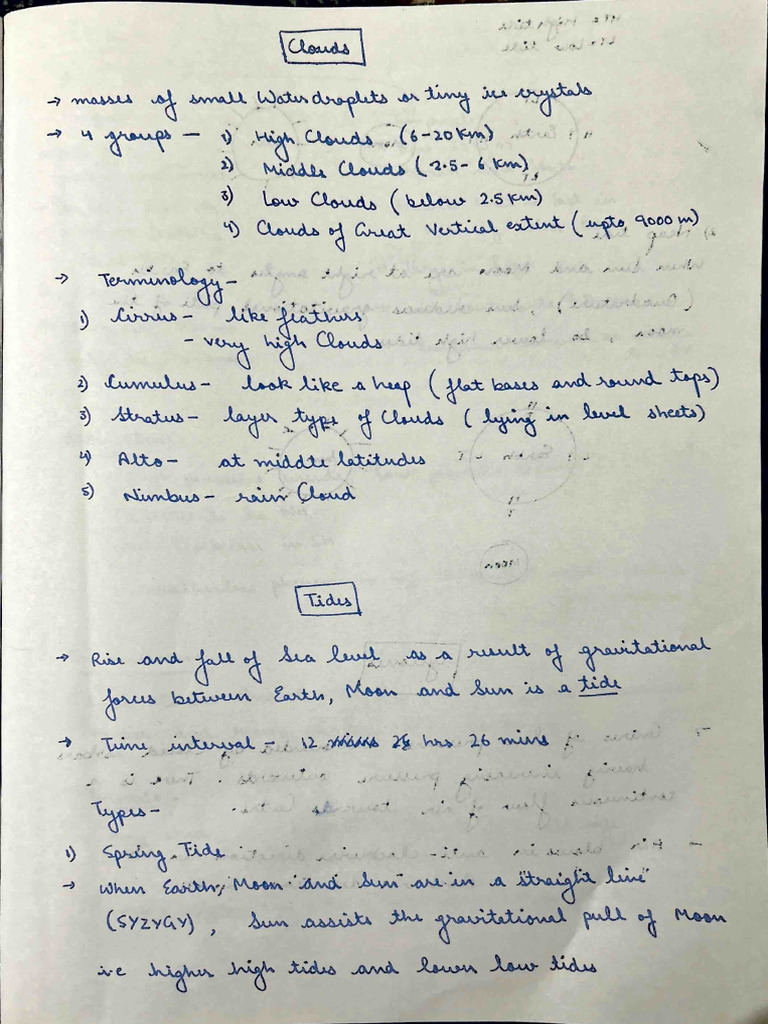 Clouds
→ masses of small Water droplets or tiny ice crystals
→ 4 groups — 1) High Clouds (6-20 Km)
2) Middle Clouds (2.5- 6 Km)
3) Low Clouds (below 2.5 Km)
4) Clouds of Great Vertical extent (upto 9000 m)
→ Terminology-
1) Cirrus- like feathers
- very high Clouds
2) Cumulus- look like a heap (flat bases and round tops)
3) Stratus- layer type of Clouds (lying in level sheets)
4) Alto- at middle latitudes
5) Nimbus- rain Cloud
Tides
→ Rise and fall of Sea level as a result of gravitational
forces between Earth, Moon and Sun is a tide
→ Time interval - 12 hrs 26 mins
Types-
1) Spring Tide
→ When Earth, Moon and Sun are in a "straight line"
(SYZYGY), Sun assists the gravitetional pull of Moon
i.e higher high tides and lower low tides